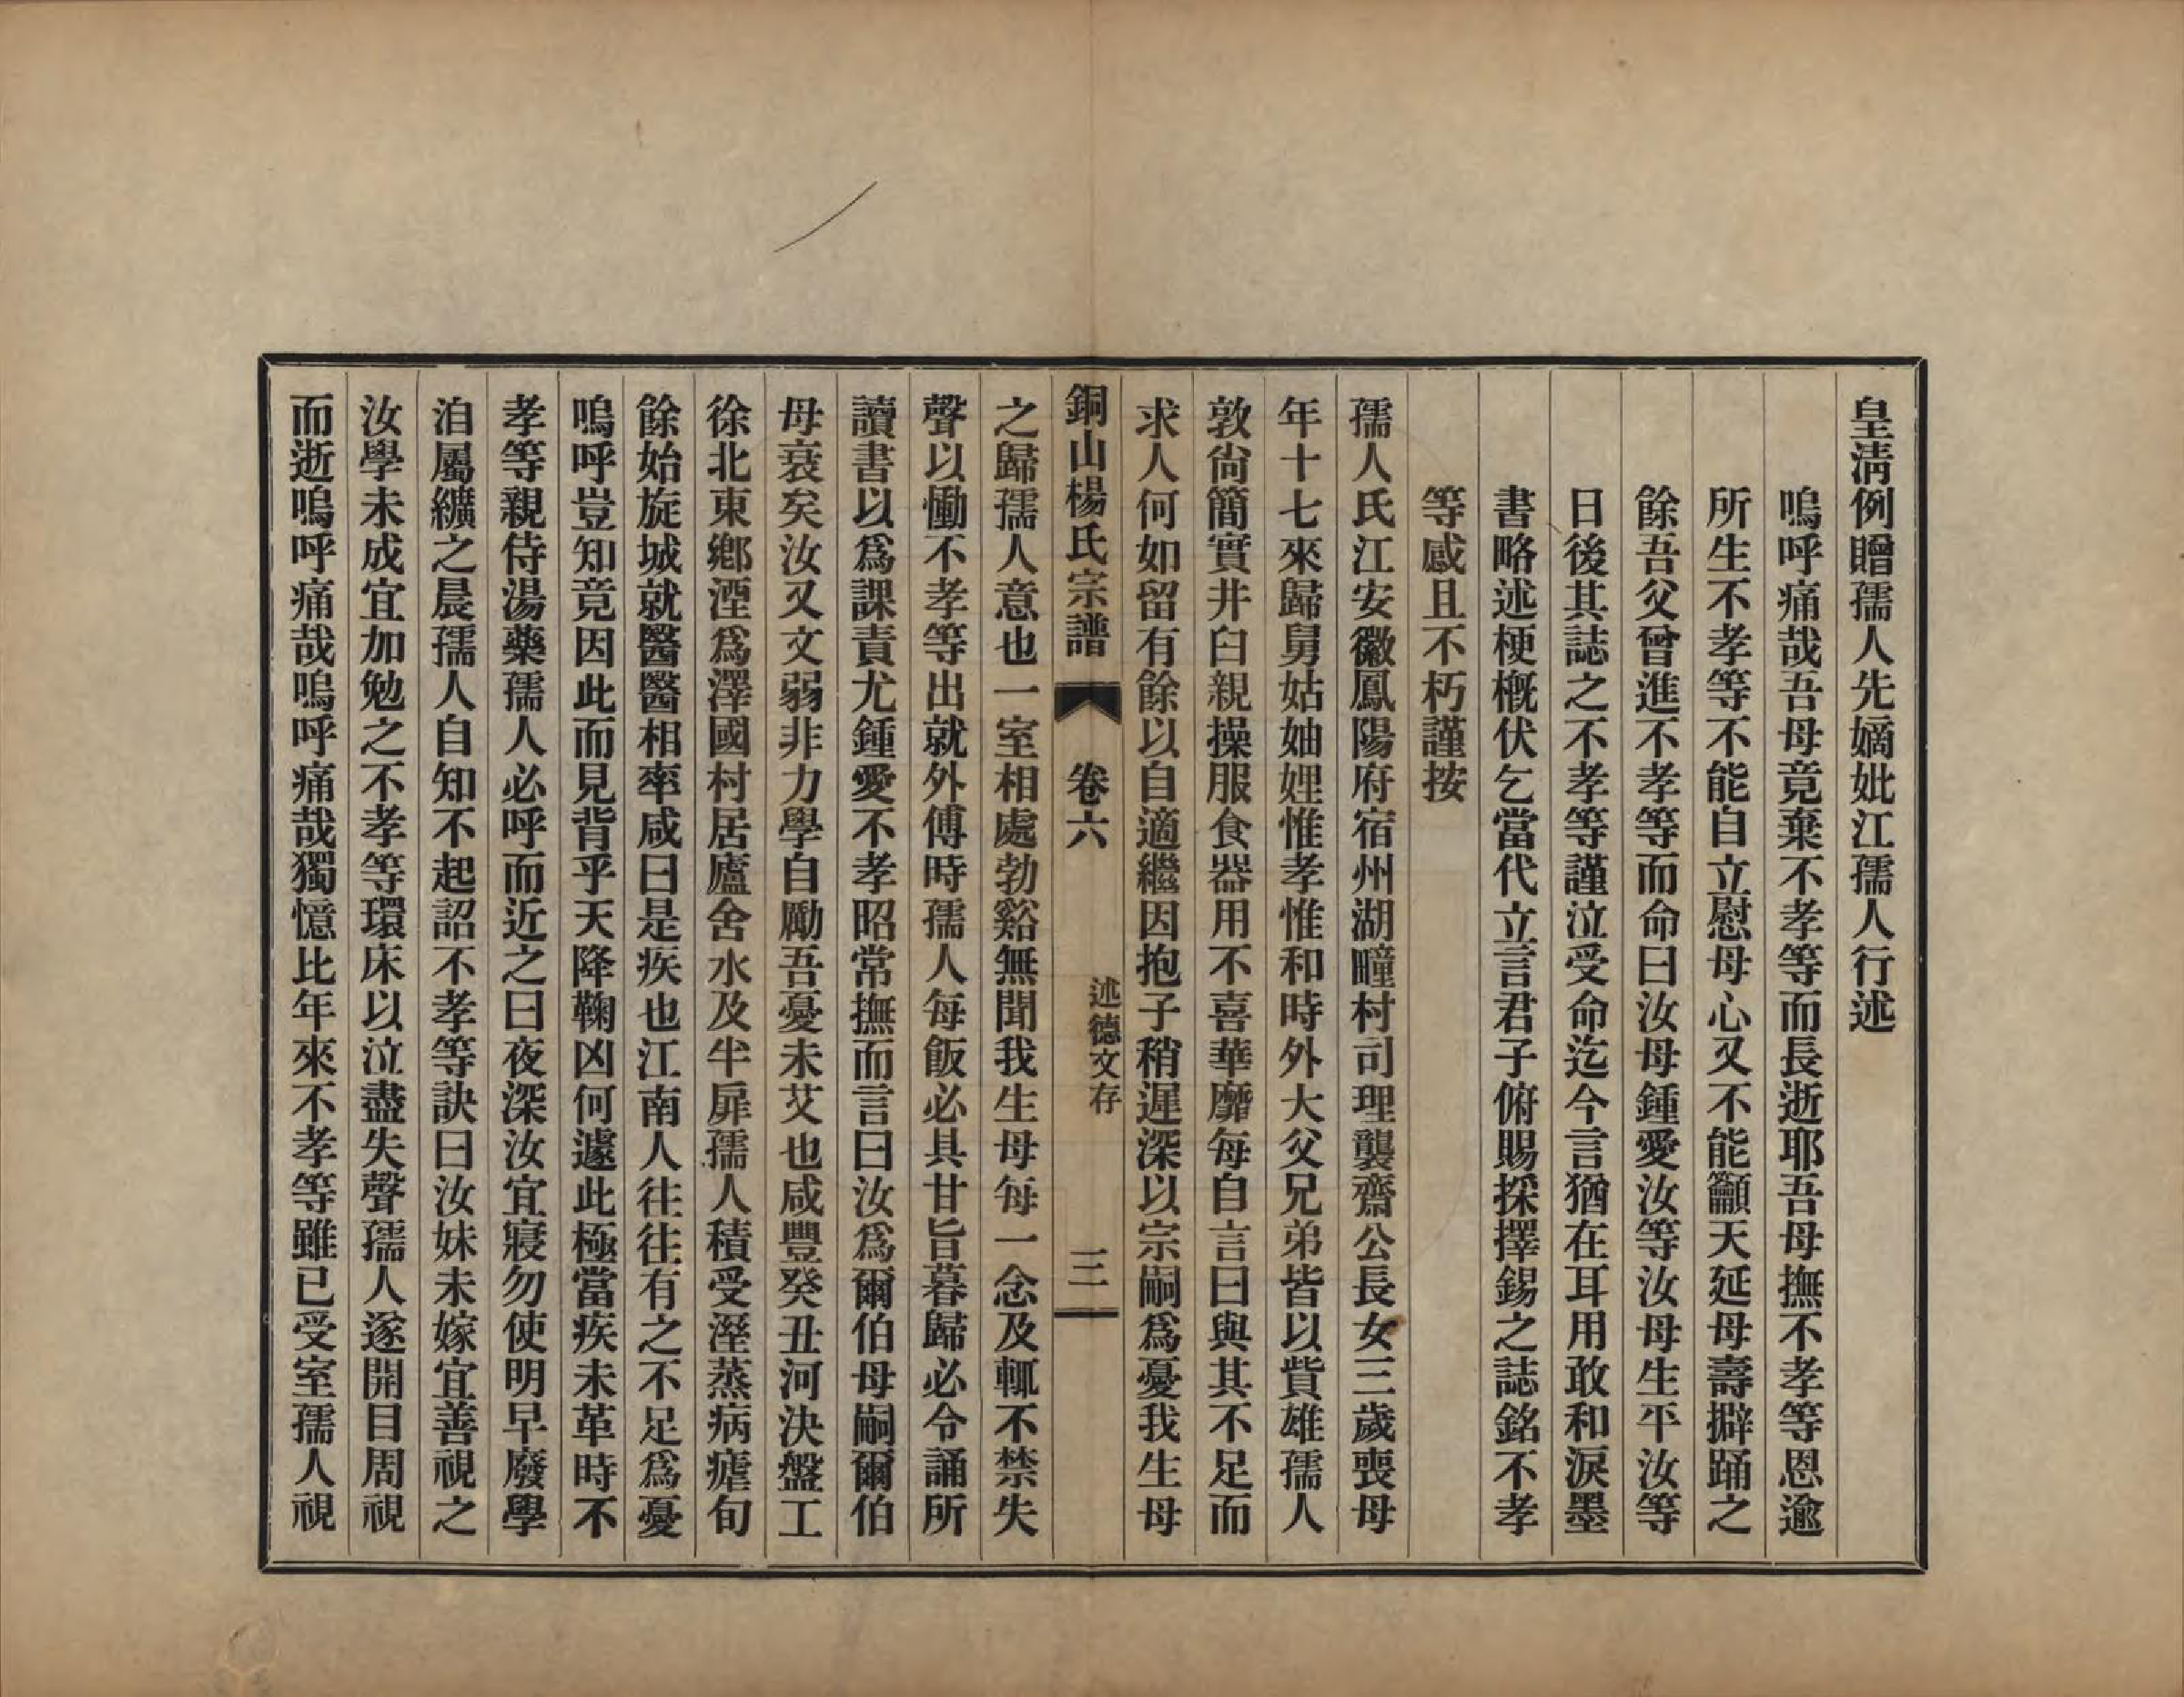 皇淸例贈孺人先嫡妣江孺人行述
嗚呼痛哉吾母竟棄不孝等而長逝耶吾母撫不孝等恩逾
所生不孝等不能自立慰母心又不能籲天延母壽擗踊之
餘吾父曾進不孝等而命曰汝母鍾愛汝等汝母生平汝等
日後其誌之不孝等謹泣受命迄今言猶在耳用敢和淚墨
書略述梗槪伏乞當代立言君子俯賜採擇錫之誌銘不孝
等感且不朽謹按
孺人氏江安徽鳳陽府宿州湖疃村司理襲齋公長女三歲喪母
年十七來歸舅姑妯娌惟孝惟和時外大父兄弟皆以貲雄孺人
敦尙簡實井臼親操服食器用不喜華靡每自言曰與其不足而
求人何如留有餘以自適繼因抱子稍遲深以宗嗣爲憂我生母
銅山楊氏宗譜 卷六 述德文存 三
之歸孺人意也一室相處勃谿無聞我生母每一念及輒不禁失
聲以慟不孝等出就外傅時孺人每飯必具甘旨暮歸必令誦所
讀書以爲課責尤鍾愛不孝昭常撫而言曰汝爲爾伯母嗣爾伯
母衰矣汝又文弱非力學自勵吾憂未艾也咸豐癸丑河決盤工
徐北東鄕湮爲澤國村居廬舍水及半扉孺人積受溼蒸病瘧旬
餘始旋城就醫醫相率咸曰是疾也江南人往往有之不足爲憂
嗚呼豈知竟因此而見背乎天降鞠凶何遽此極當疾未革時不
孝等親侍湯藥孺人必呼而近之曰夜深汝宜寢勿使明早廢學
洎屬纊之晨孺人自知不起詔不孝等訣曰汝妹未嫁宜善視之
汝學未成宜加勉之不孝等環床以泣盡失聲孺人遂開目周視
而逝嗚呼痛哉嗚呼痛哉獨憶比年來不孝等雖已受室孺人視